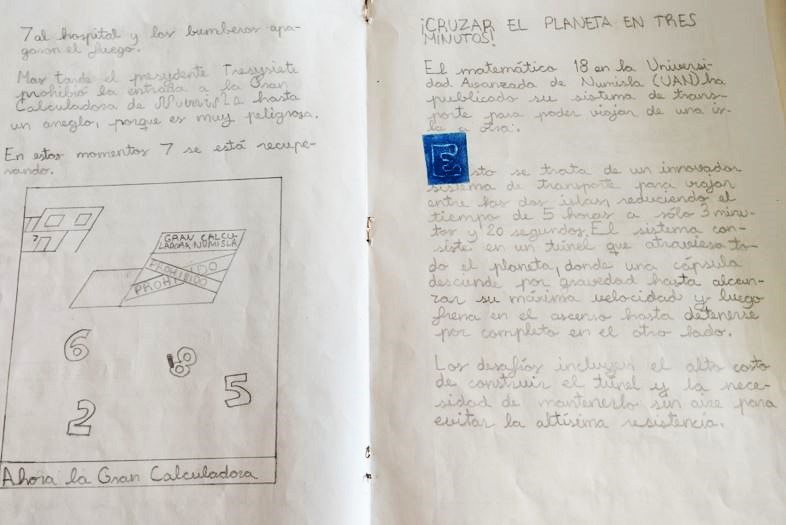 7 al hospital y los bumberos apa-
garon el fuego.
Mas tarde el presydente Tresysiete
prohibió la entrada a la Gran
Calculadora de Numisla hasta
un aneglo, porque es muy peligrosa.
En estos momentos 7 se está recupe-
rando.
7
GRAN CALCU-
LADORA NUMISLA
PROHIBIDO
PROHIBIDO
6
18
5
2
Ahora la Gran Calculadora
¡CRUZAR EL PLANETA EN TRES
MINUTOS!
El matemático 18 en la Universi-
dad Avanzada de Numisla (UAN) ha
publicado su sistema de trans-
porte para poder viajar de una is-
la a otra.
Esto se trata de un innovador
sistema de transporte para viajar
entre las dos islas, reduciendo el
tiempo de 5 horas a sólo 3 minu-
tos y 20 segundos. El sistema con-
siste en un túnel que atraviesa to-
do el planeta, donde una cápsula
descunde por gravedad hasta alcan-
zar su máxima velocidad y luego
frena en el ascenso hasta detenerse
por completo en el otro lado.
Los desafíos incluyen el alto costo
de construir el túnel y la nece-
sidad de mantenerlo sin aire para
evitar la altísima resistencia.